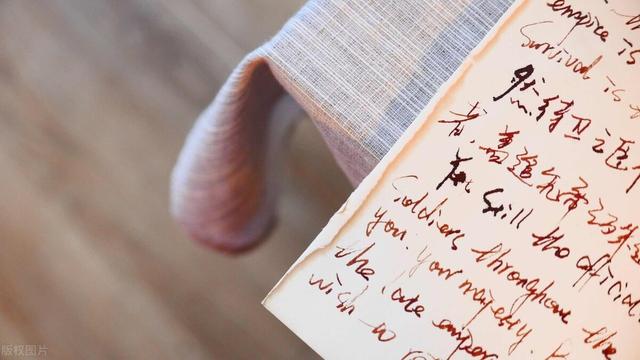 empire is
Survival is
然侍卫之臣
者，盖追先帝之殊遇
Still the official
Soldiers throughout the
you. Your majesty
the late emper
wish to
版权图片